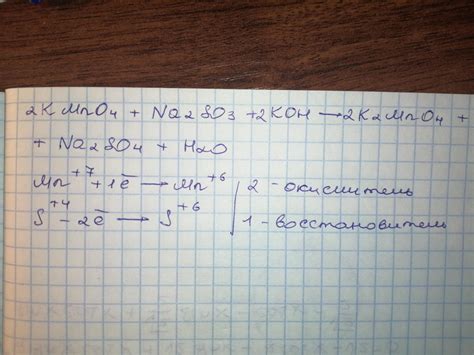 2KMnO4 + Na2SO3 + 2KOH → 2K2MnO4 +
+ Na2SO4 + H2O
Mn+7 + 1ē → Mn+6 | 2 - окислитель
S+4 - 2ē → S+6 | 1 - восстановитель